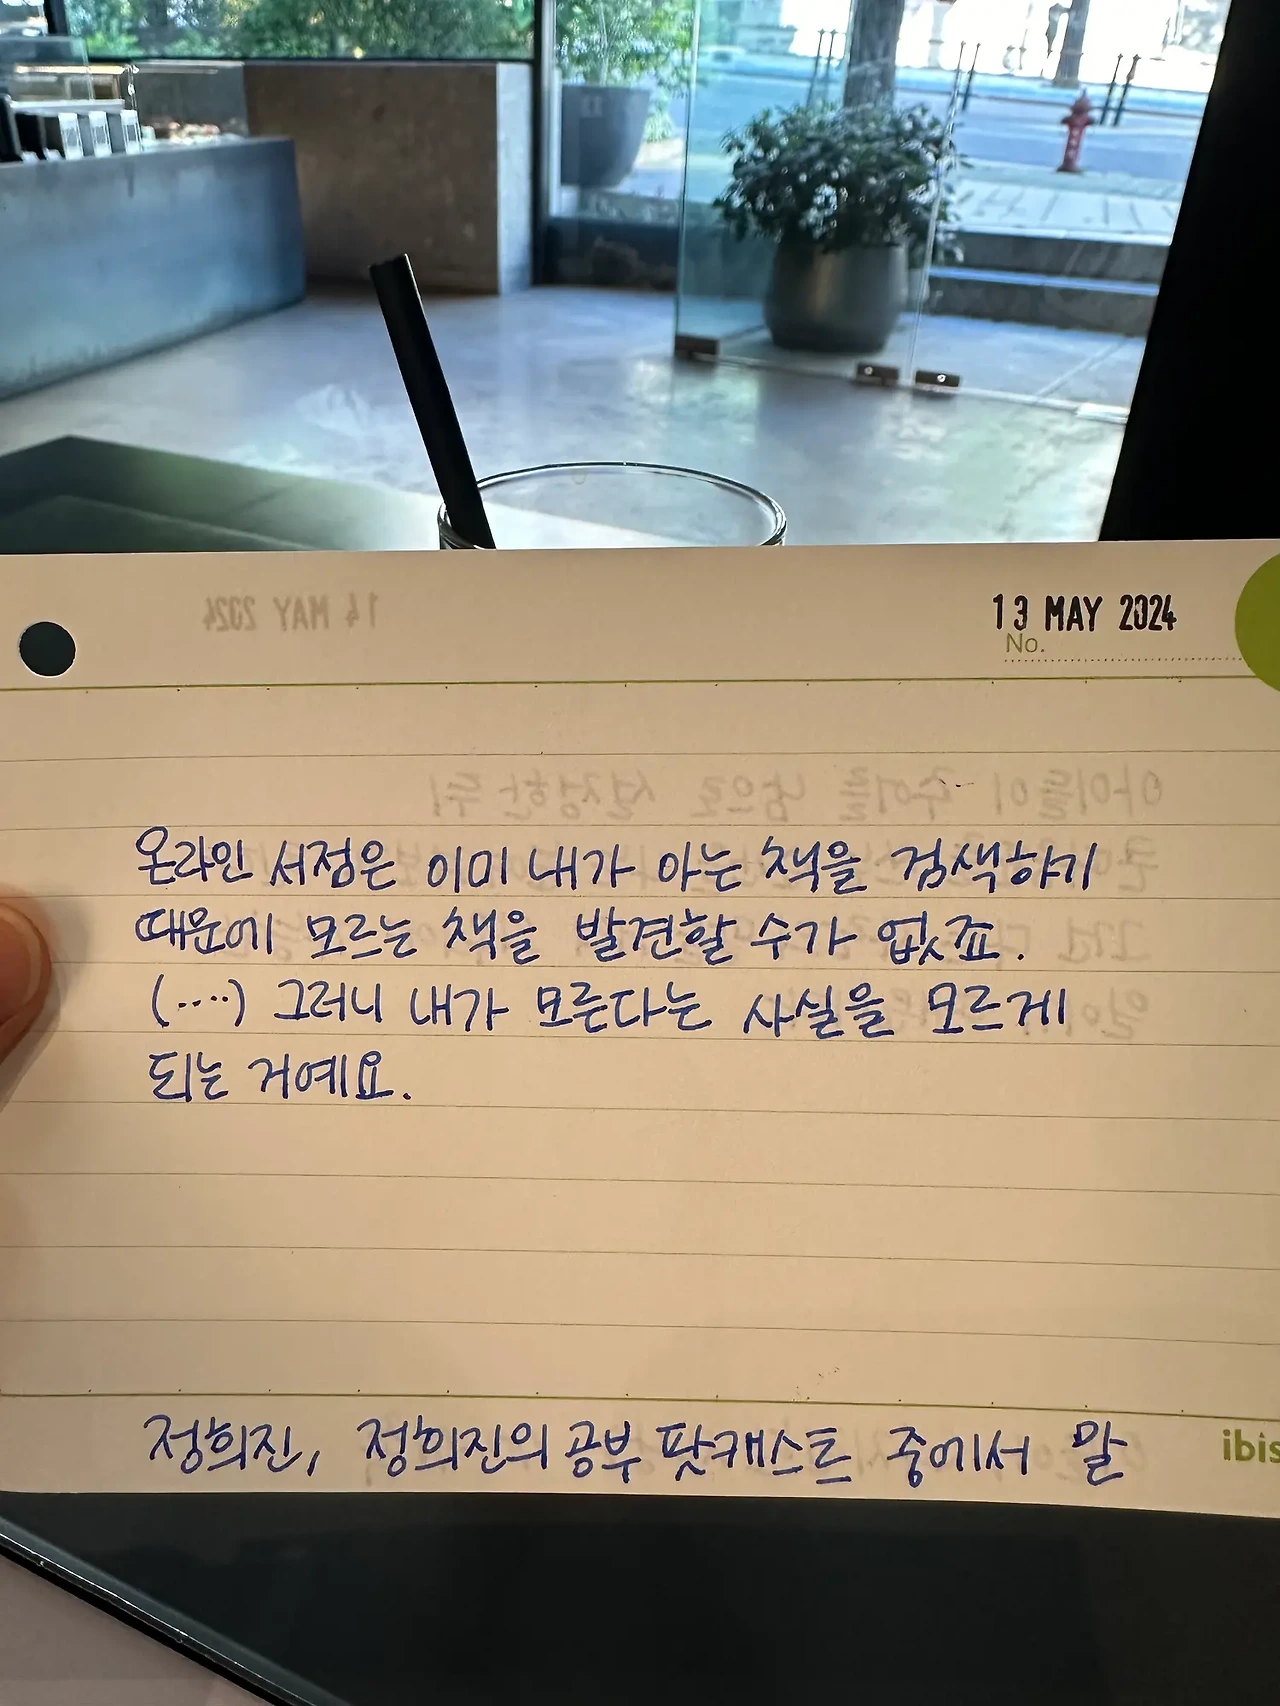 13 MAY 2024
No.
14 MAY 2024
아이들이 주어를 남으로 설정한 뒤
온라인 서점은 이미 내가 아는 책을 검색하기
때문에 모르는 책을 발견할 수가 없죠.
(....) 그러니 내가 모른다는 사실을 모르게
되는 거예요.
정희진, 정희진의 공부 팟캐스트 중에서 말
ibis